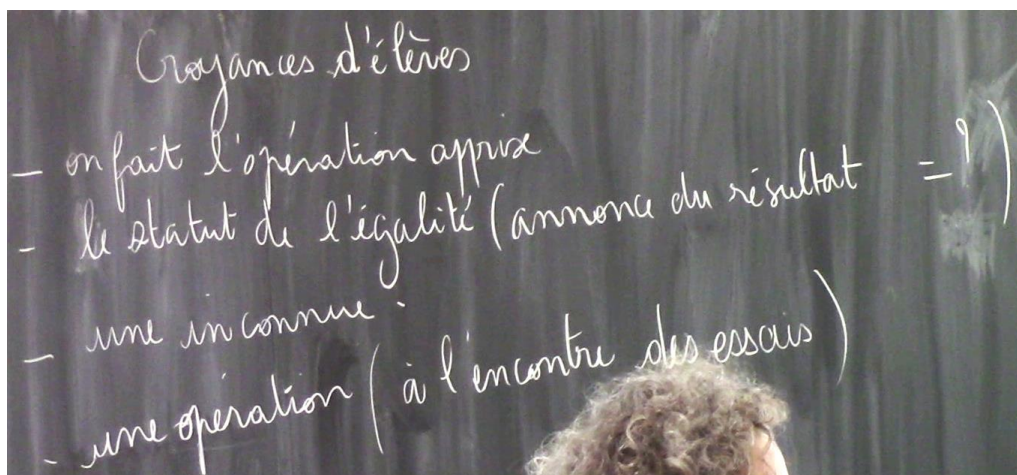 Croyances d'élèves
- on fait l'opération apprise
- le statut de l'égalité (annonce du résultat = ?)
- une inconnue.
- une opération (à l'encontre des essais)